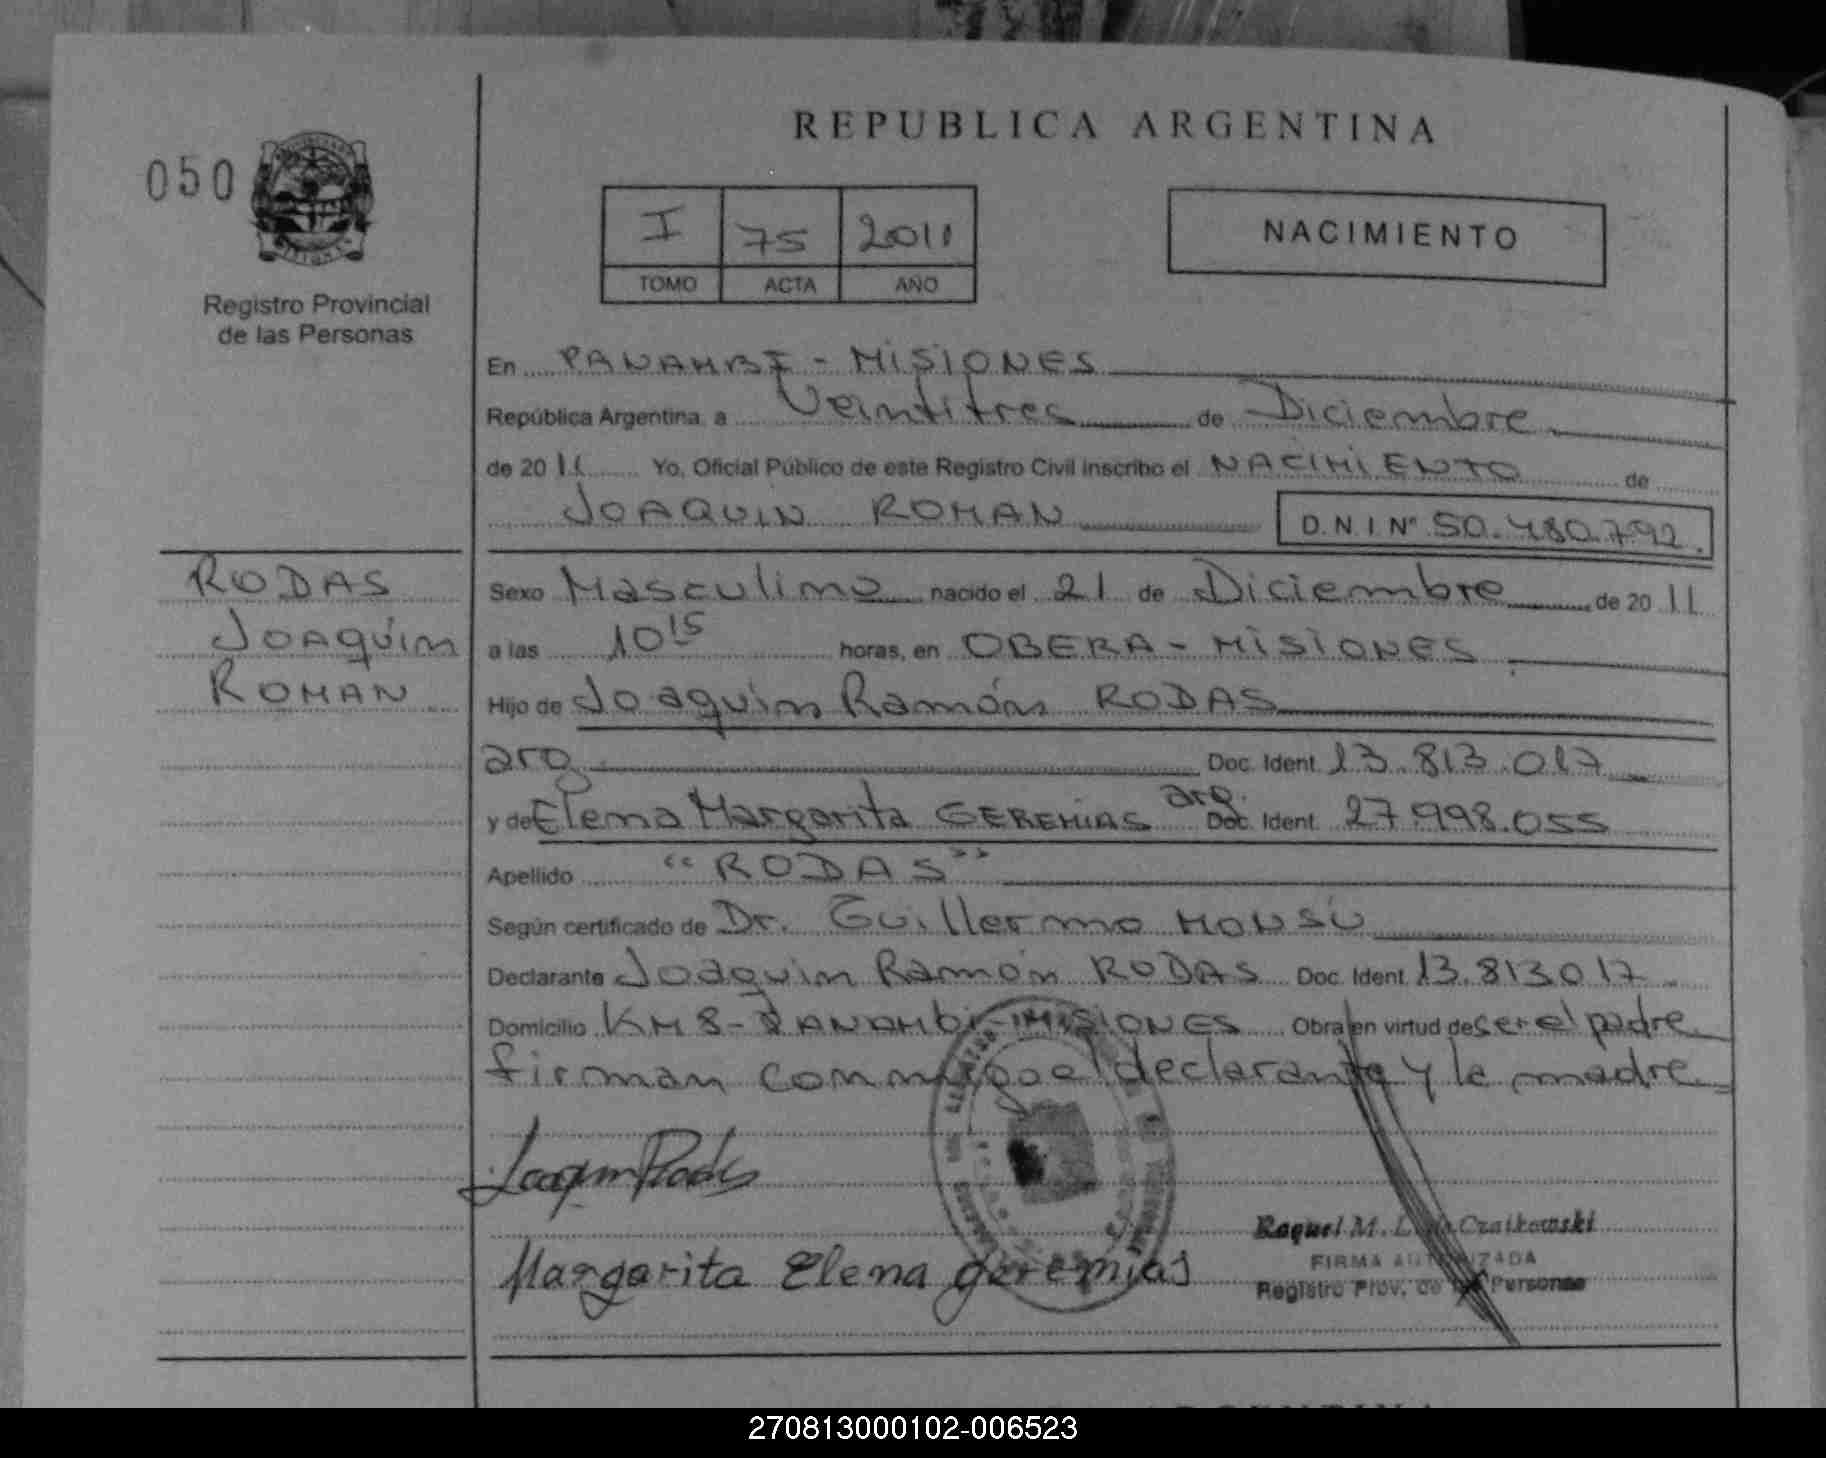 REPUBLICA ARGENTINA
050
I 75 2011
TOMO ACTA AÑO
NACIMIENTO
Registro Provincial
de las Personas
En PANAMBI - MISIONES
República Argentina, a Veintitres de Diciembre
de 2011 Yo, Oficial Público de este Registro Civil inscribo el NACIMIENTO de
JOAQUIN ROMAN D.N.I Nº 50.480.792.
RODAS
JOAQUIN
ROMAN
Sexo Masculino nacido el 21 de Diciembre de 2011
a las 10 15 horas, en OBERA - MISIONES
Hijo de Joaquin Ramón RODAS
arg Doc. Ident. 13.813.017
y de Elena Margarita GEREMIAS arg. Doc. Ident. 27.998.055
Apellido "RODAS"
Según certificado de Dr. Guillermo MONSU
Declarante Joaquin Ramón RODAS Doc. Ident. 13.813.017
Domicilio KM 8 - PANAMBi - MISIONES Obra en virtud de ser el padre
firman conmigo el declarante y la madre
Joaquin Rodas
Margarita Elena geremias
Raquel M. Czaikowski
FIRMA AUTORIZADA
Registro Prov. de las Personas
270813000102-006523